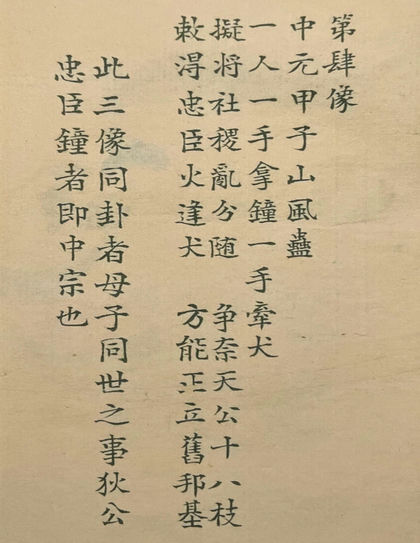 第肆像
中元甲子山風蠱
一人一手拿鐘一手牽犬
擬將社稷亂分随　争奈天公十八枝
敕淂忠臣火逢犬　方能正立舊邦基
此三像同卦者母子同世之事狄公
忠臣鐘者即中宗也